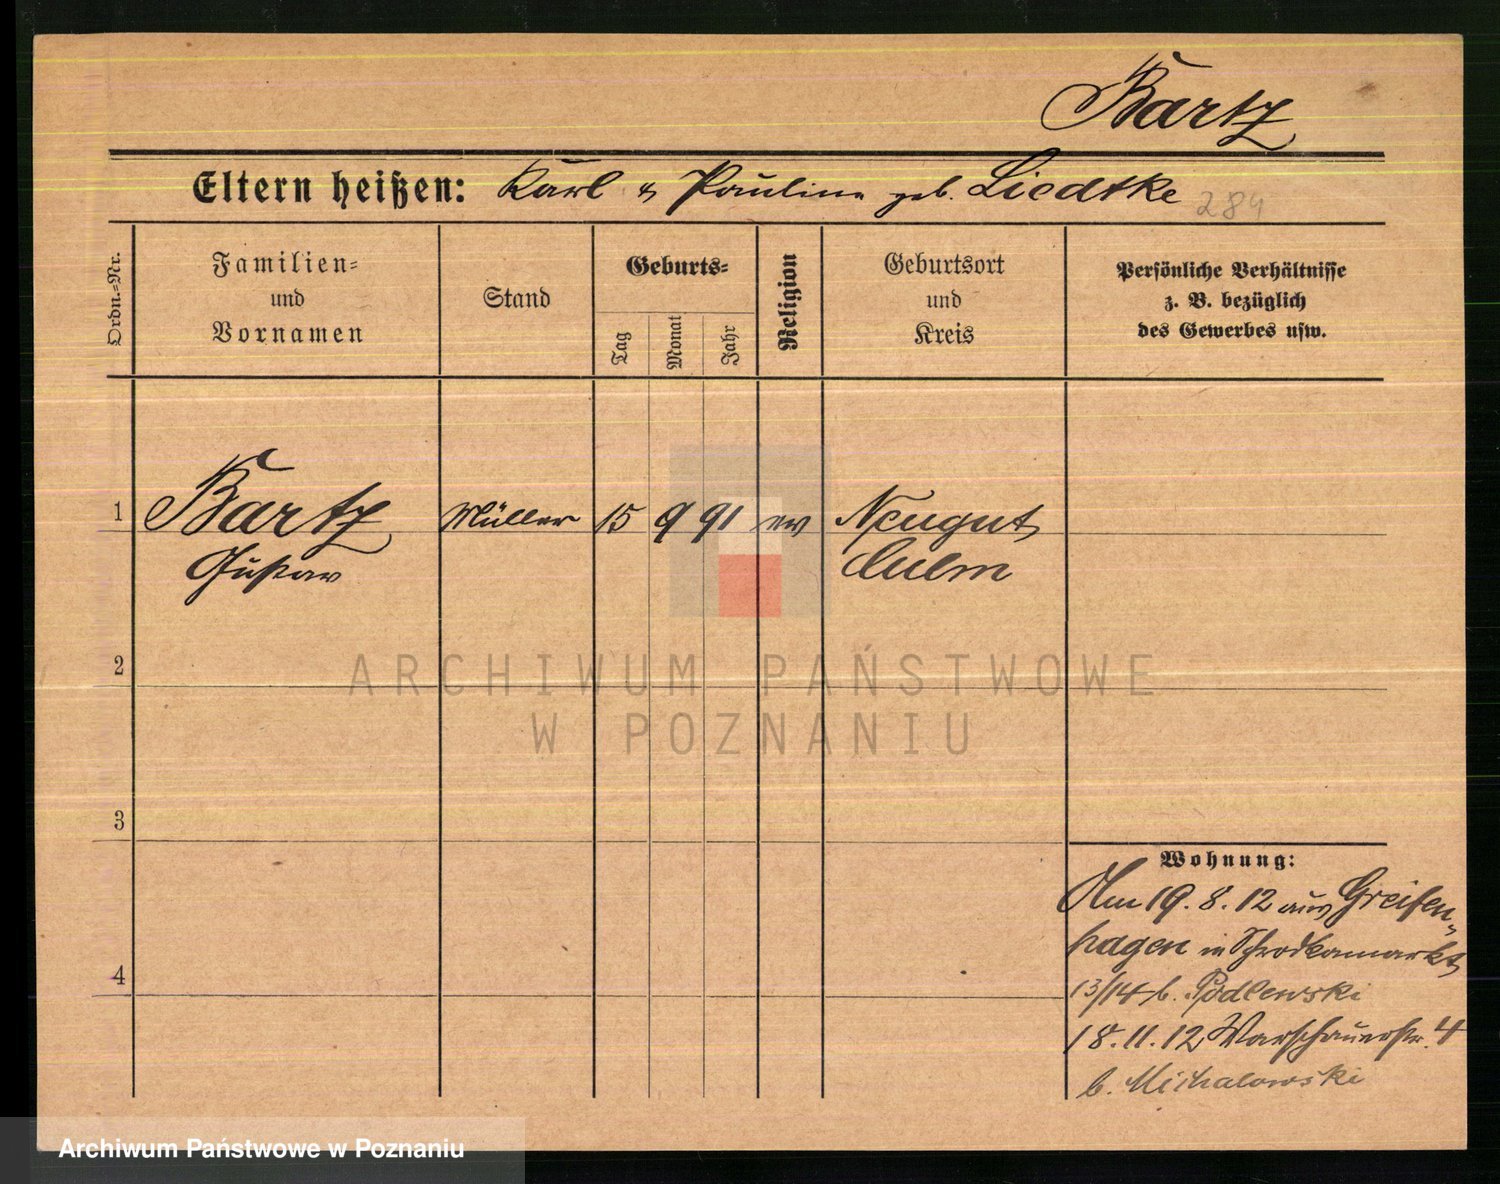 Bartz
Eltern heißen: Karl & Pauline geb. Liedtke 284
Ordn.=Nr.
Familien=
und
Vornamen
Stand
Geburts=
Tag
Monat
Jahr
Religion
Geburtsort
und
Kreis
Persönliche Verhältnisse
z. B. bezüglich
des Gewerbes usw.
1 Bartz Müller 15 9 91 ev Neugut
Gustav Culm
2
ARCHIWUM PAŃSTWOWE
W POZNANIU
3
Wohnung:
Am 19.8.12 aus Greifen=
hagen in Schrodkamarkt
4
13/14 b. Podlewski
18.11.12 Warschauerstr. 4
b. Michalowski
Archiwum Państwowe w Poznaniu